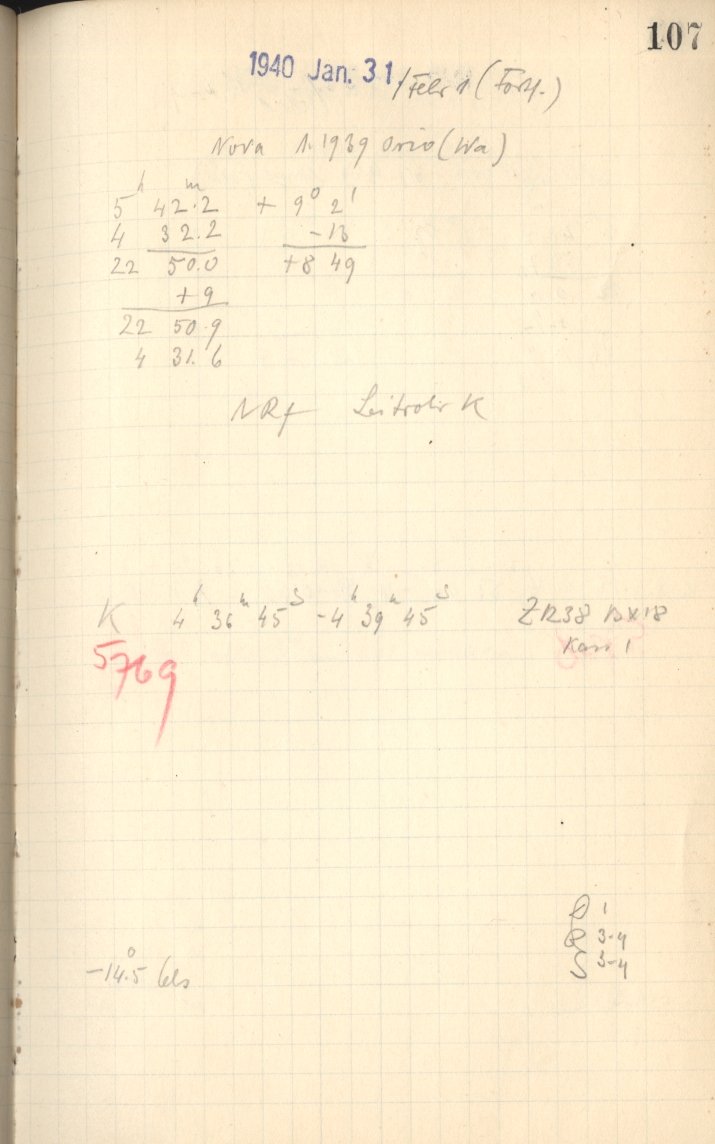 107
1940 Jan. 31./Febr 1 (Forts.)
Nova 1.1939 Orio (Wa)
5h 42.2m + 9° 2'
4 32.2 -13
22 50.0 +8 49
+9
22 50.9
4 31.6
NRf Leitrohr K
K 4h 36m 45s - 4h 39m 45s ZR38 BX18
5769 Kass 1
D 1
R 3-4
-14°.5 Cels S 3-4